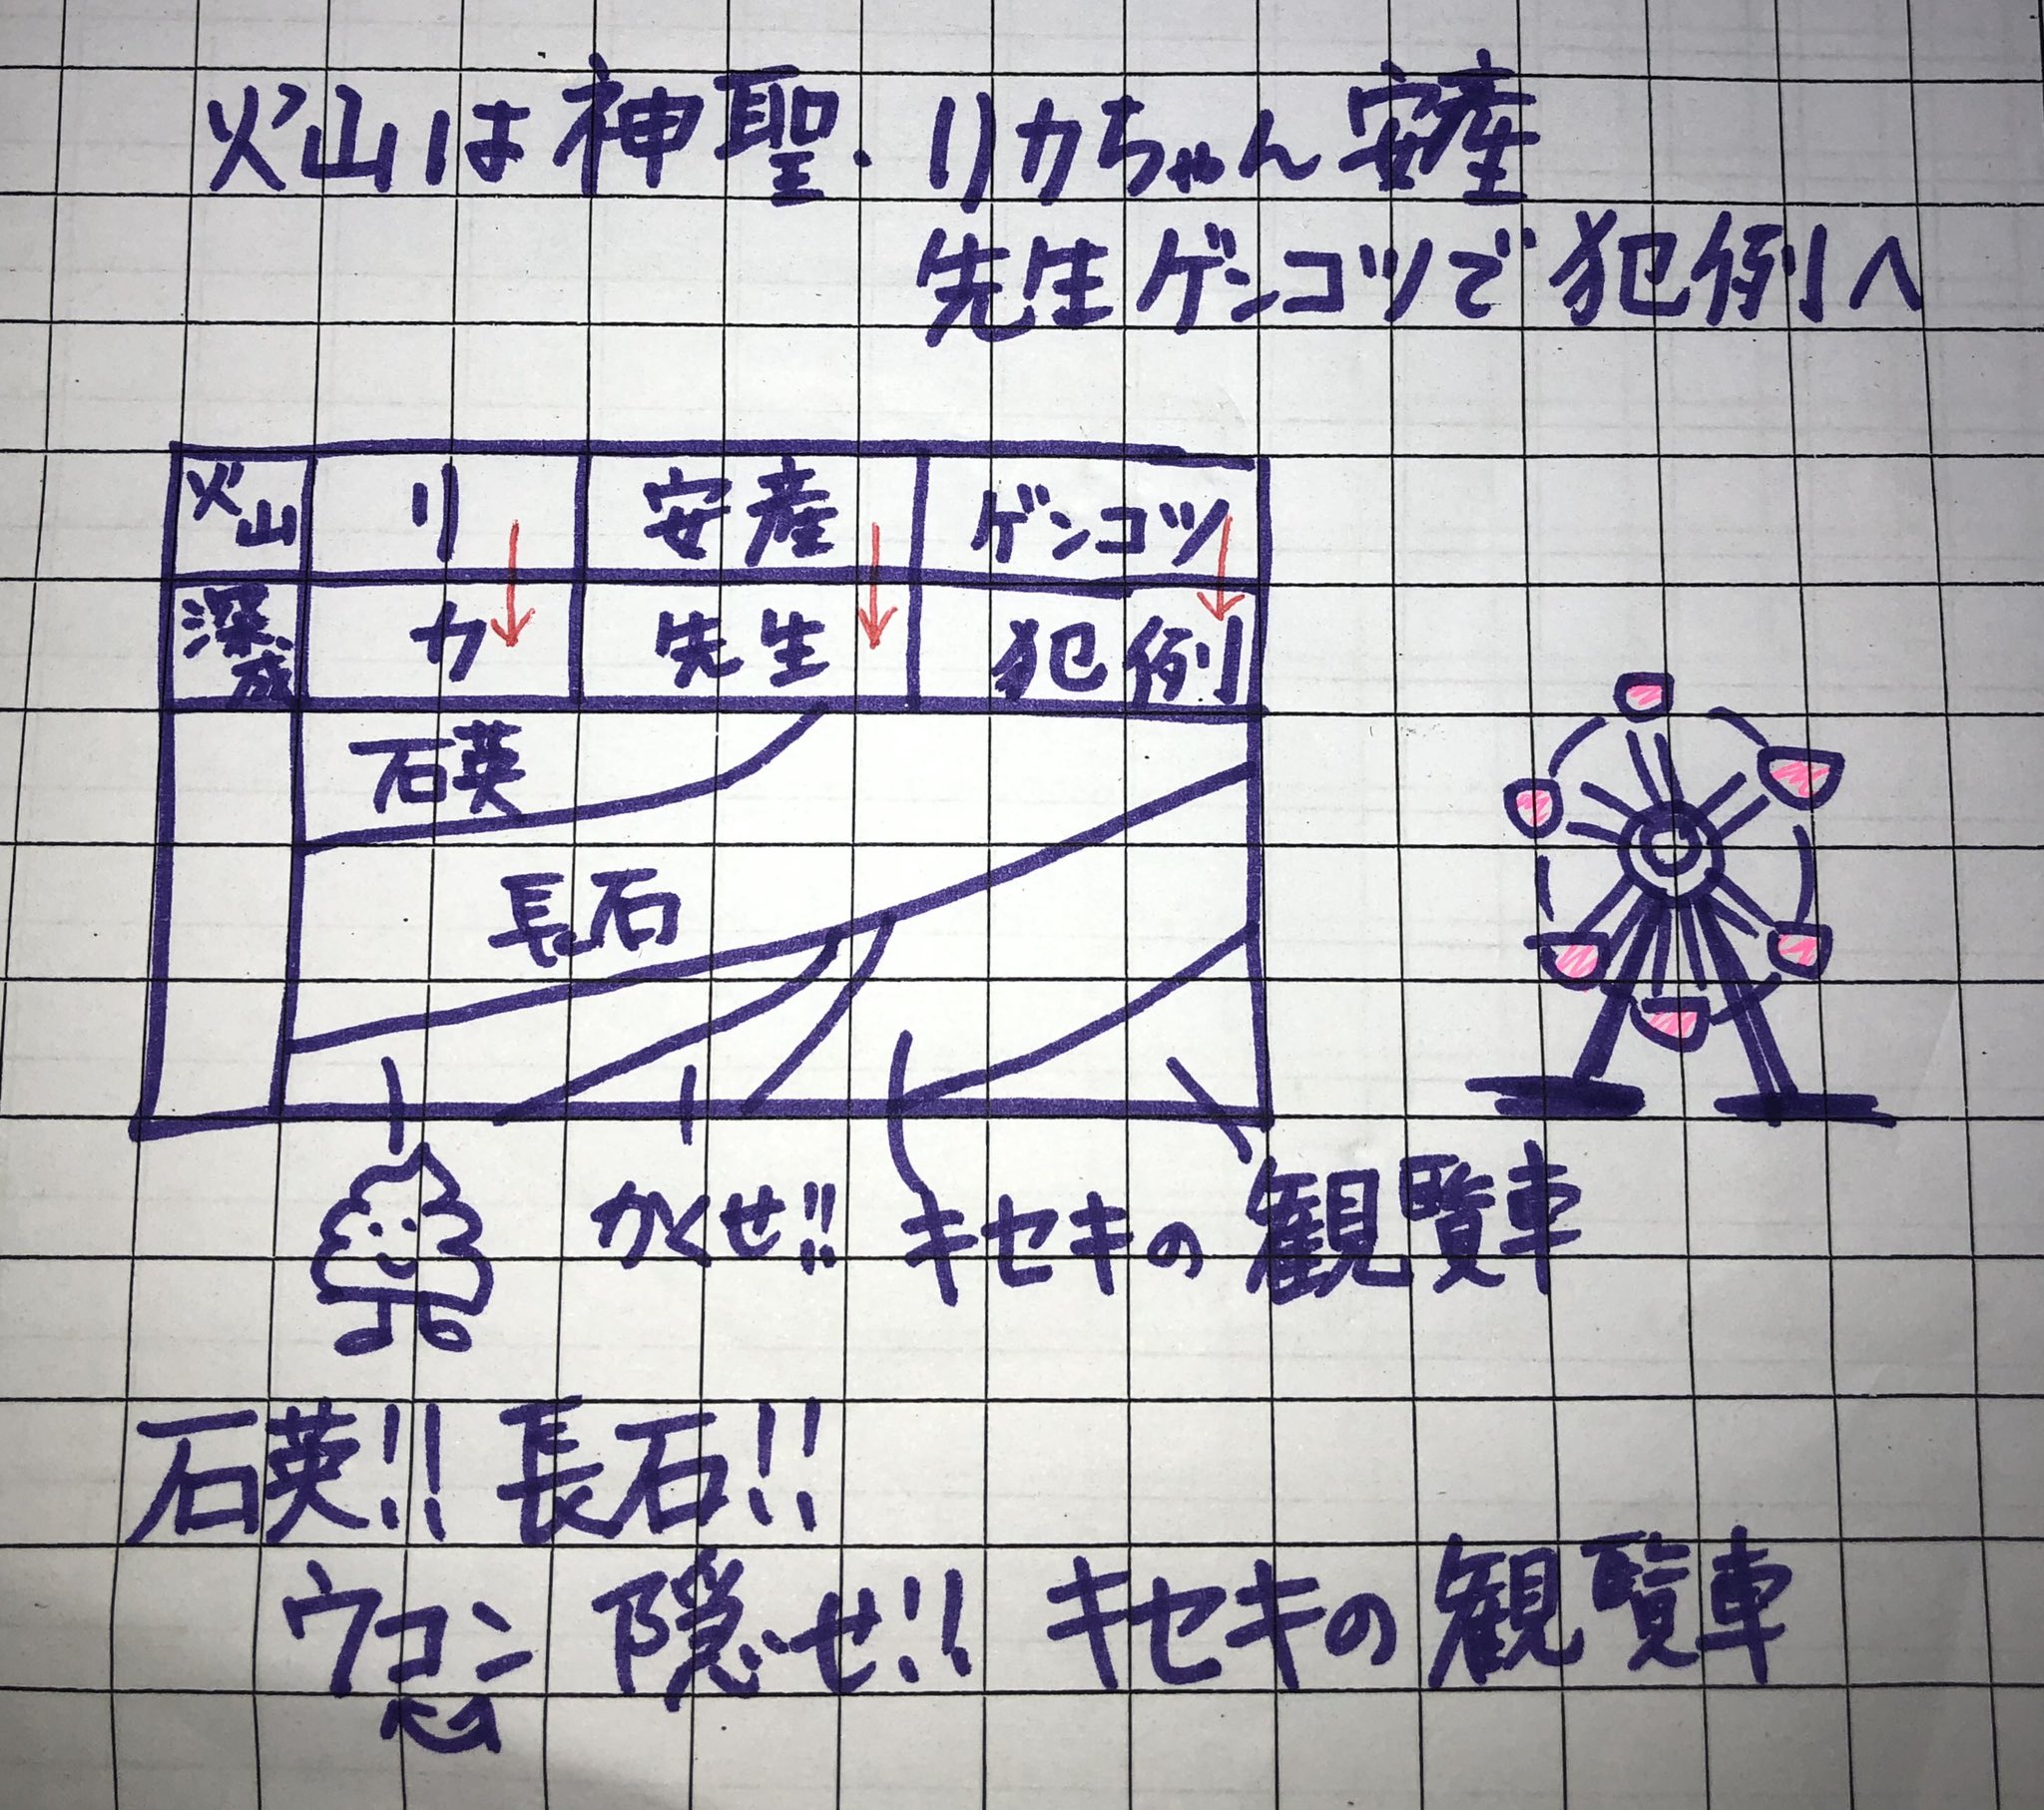 火山は神聖.リカちゃん安産
先生ゲンコツで犯例へ
火山 リ 安産 ゲンコツ
深成 カ 先生 犯例
石英
長石
かくせ!! キセキの 観覧車
石英!! 長石!!
ウコン 隠せ!! キセキの観覧車